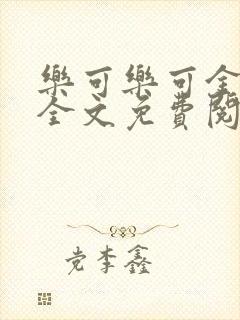 樂可樂可全
全文免費閱
党李鑫